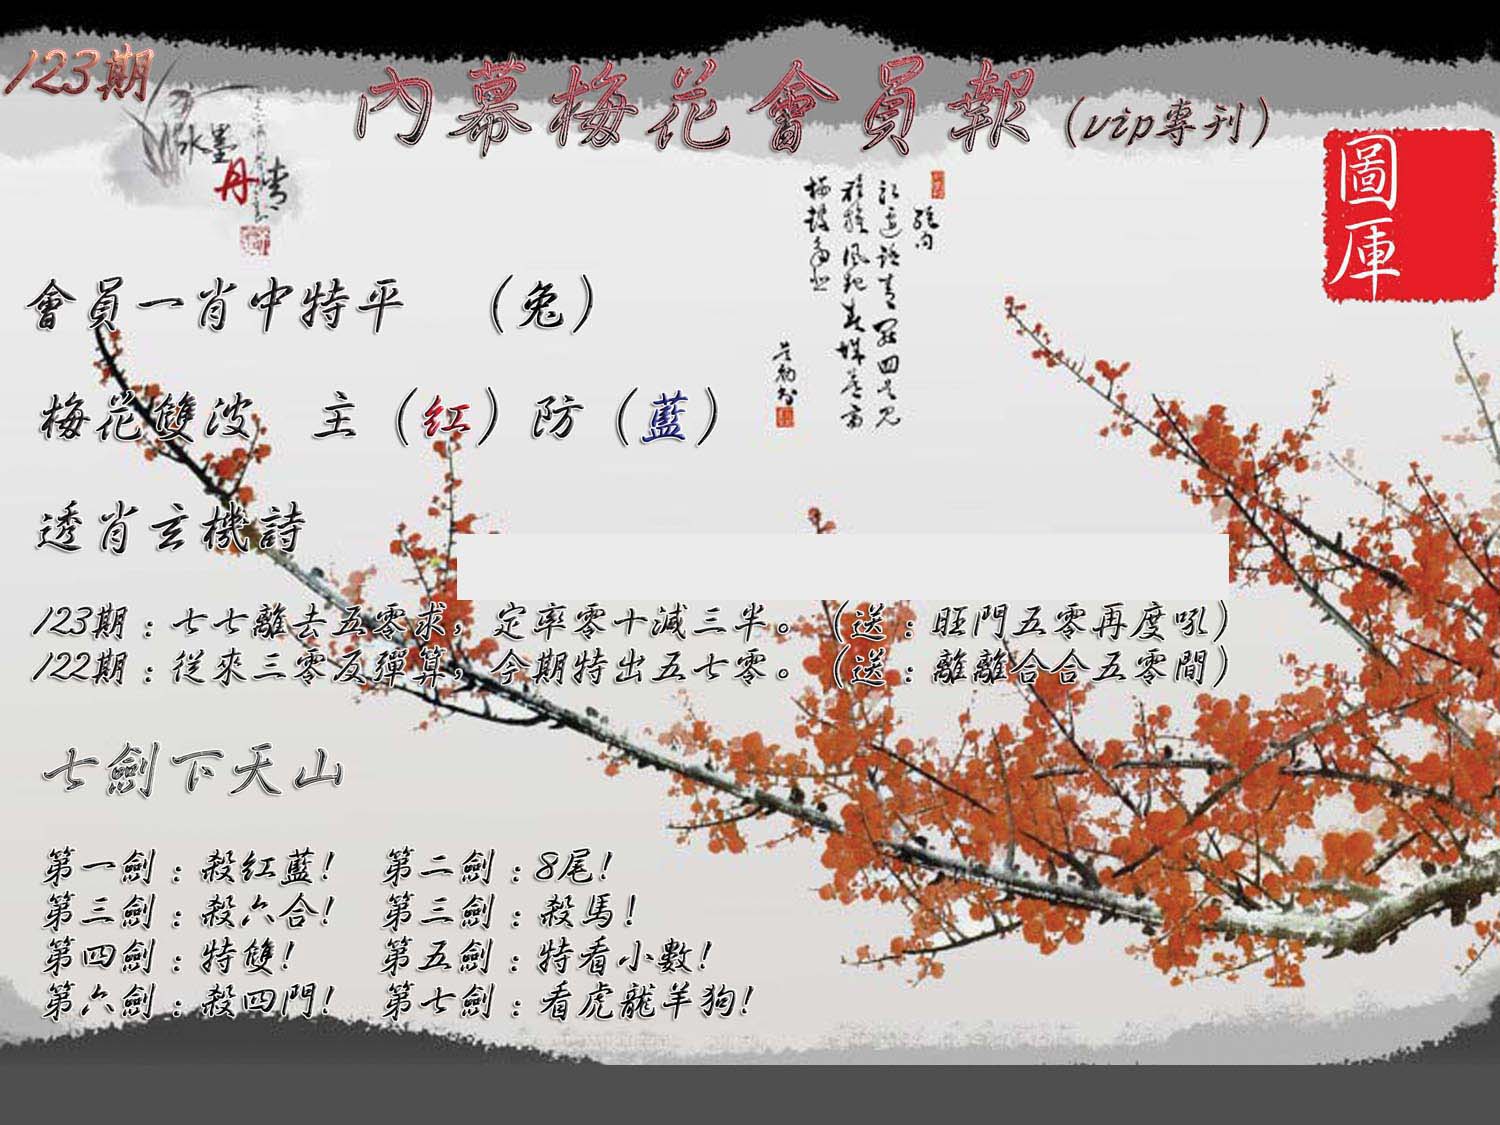 123期
內幕梅花會員報（vip專刊）
水墨
丹青
圖
庫
會員一肖中特平　（兔）
梅花雙波　主（紅）防（藍）
透肖玄機詩
123期：七七離去五零求，定率零十減三半。（送：旺門五零再度吼）
122期：從來三零反彈算，今期特出五七零。（送：離離合合五零間）
七劍下天山
第一劍：殺紅藍！　第二劍：8尾！
第三劍：殺六合！　第三劍：殺馬！
第四劍：特雙！　第五劍：特看小數！
第六劍：殺四門！　第七劍：看虎龍羊狗！